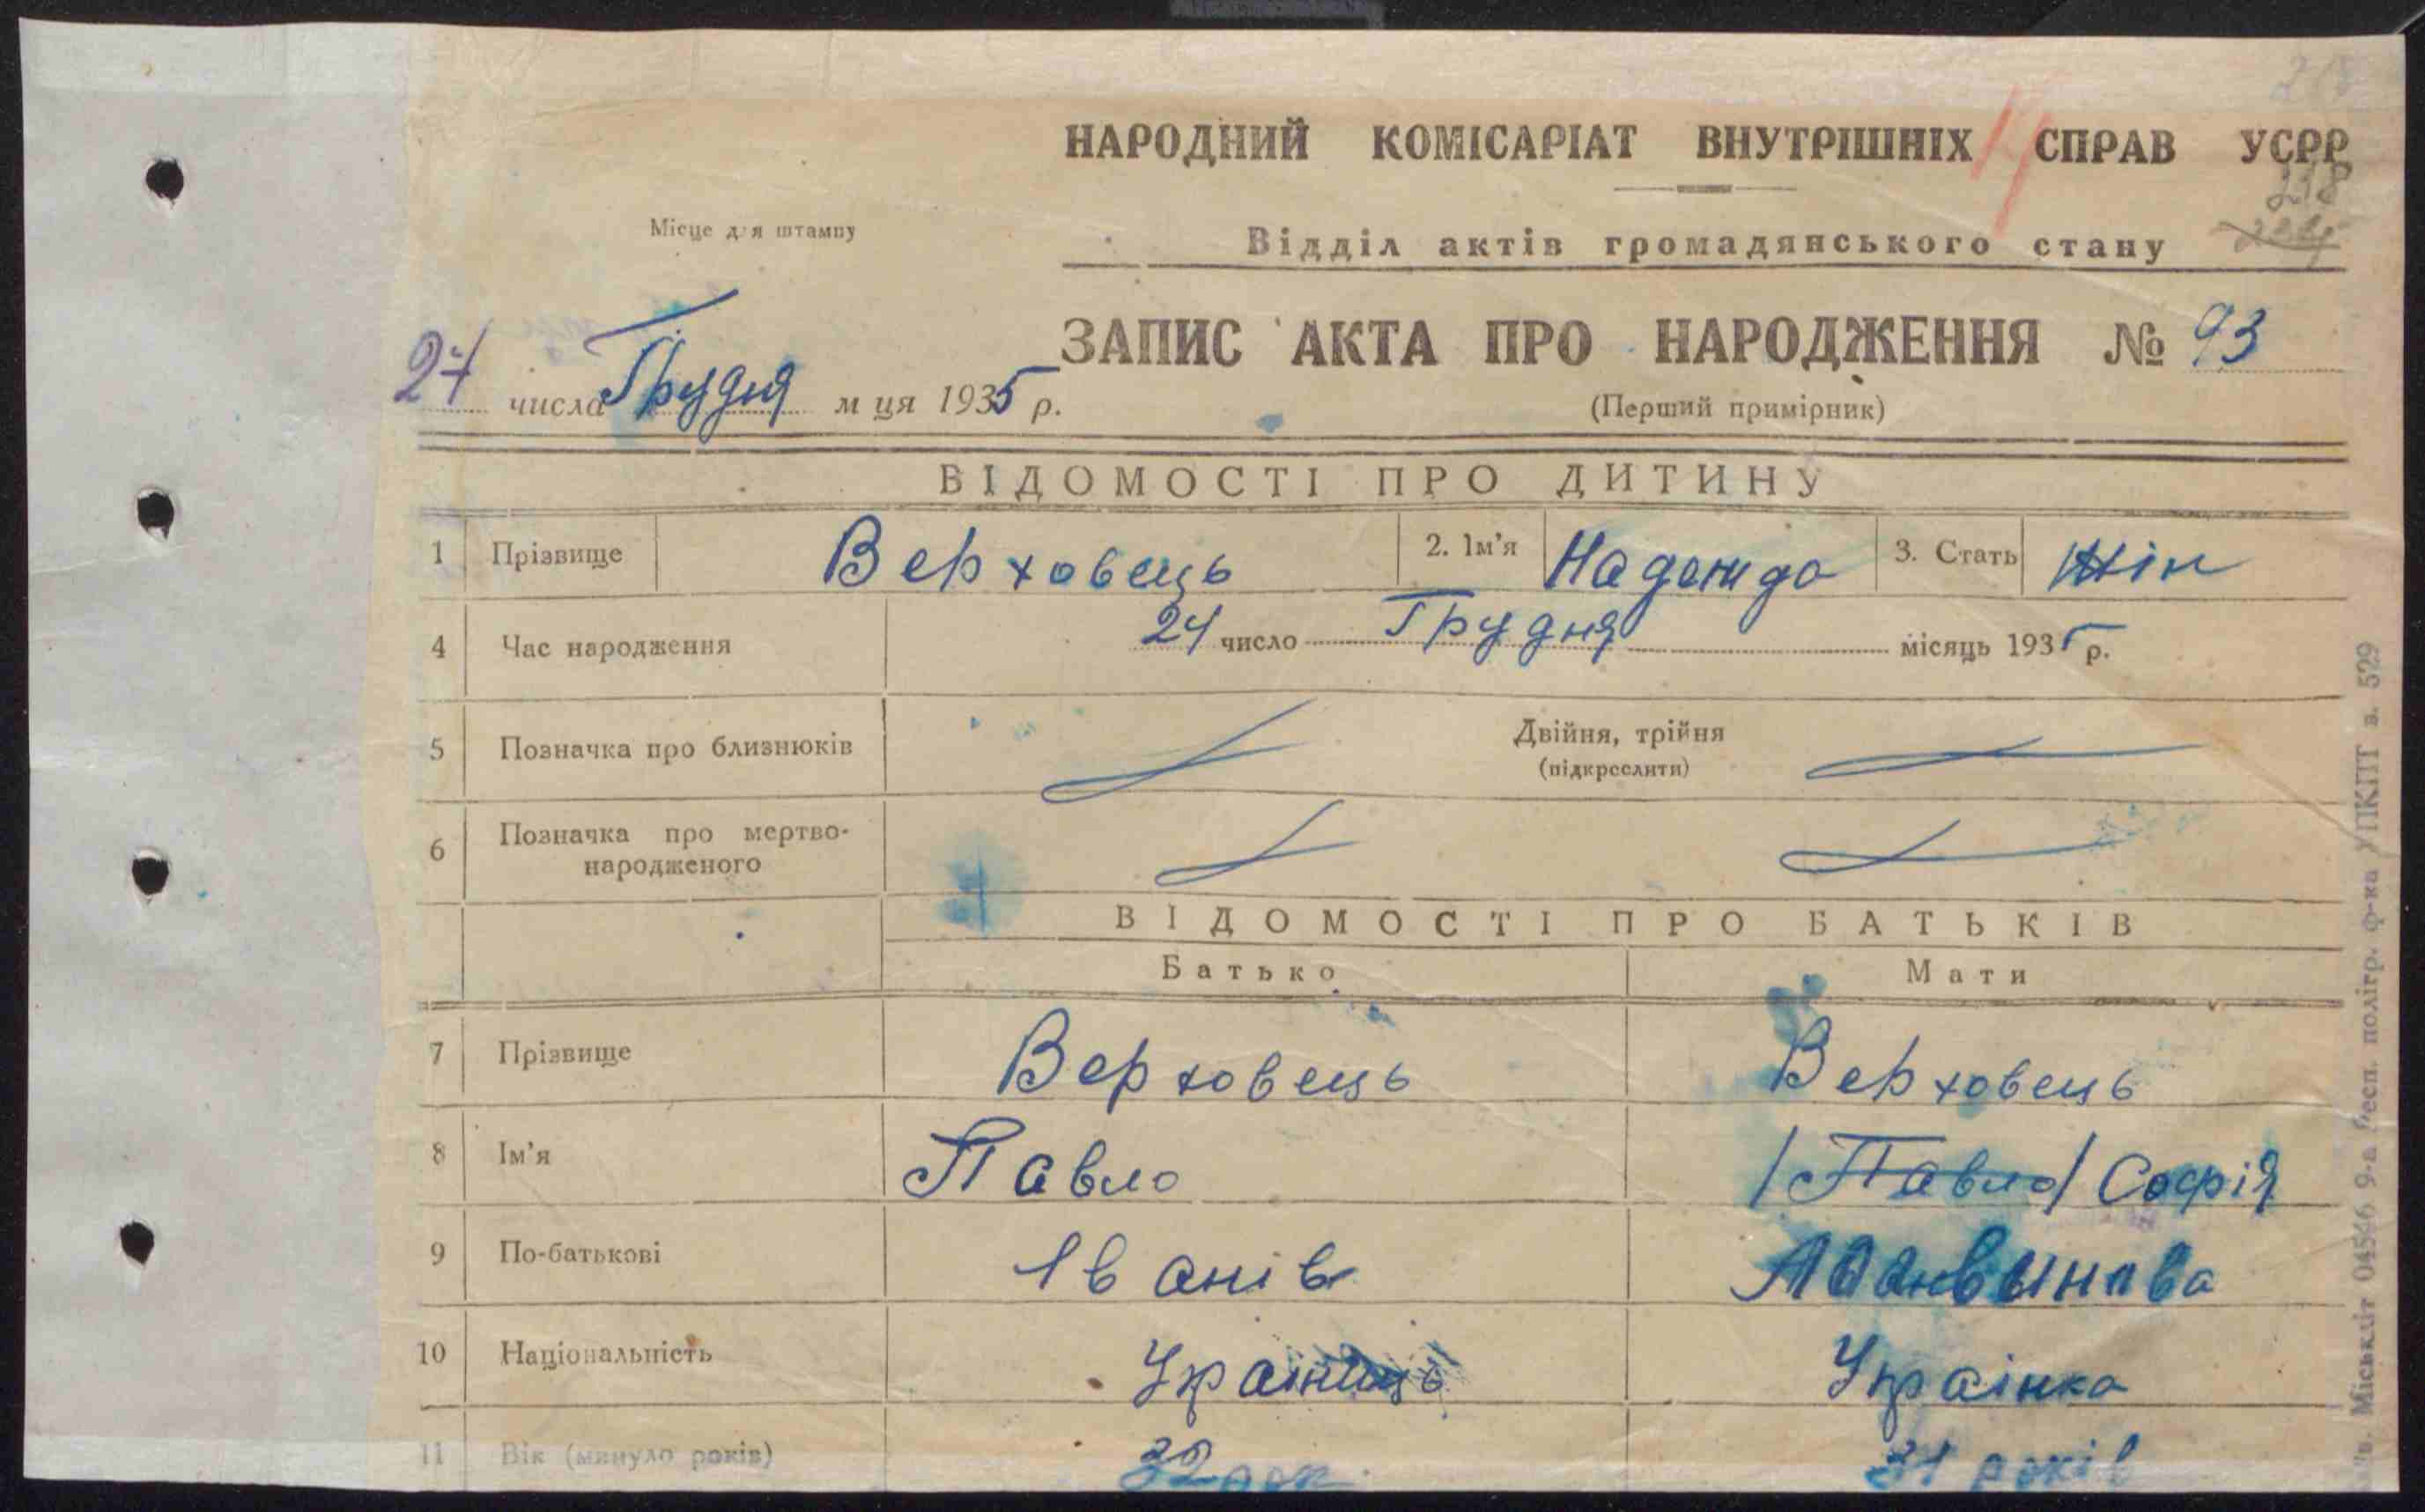 НАРОДНИЙ КОМІСАРІАТ ВНУТРІШНІХ СПРАВ УСРР
218
Місце для штампу
Відділ актів громадянського стану
ЗАПИС АКТА ПРО НАРОДЖЕННЯ № 93
27 числа Грудня м ця 1935 р.
(Перший примірник)
ВІДОМОСТІ ПРО ДИТИНУ
1 Прізвище Верховець 2. Ім'я Надежда 3. Стать Жін
4 Час народження 24 число Грудня місяць 1935 р.
5 Позначка про близнюків Двійня, трійня
(підкреслити)
6 Позначка про мертво-
народженого
ВІДОМОСТІ ПРО БАТЬКІВ
Батько Мати
7 Прізвище Верховець Верховець
8 Ім'я Павло /Павло/ Софія
9 По-батькові Іванів
10 Національність Українець Українка
11 Вік (минуло років) 32 рок 31 років
Міськліт 04546 9-а респ. полігр. ф-ка УПКПТ з. 529